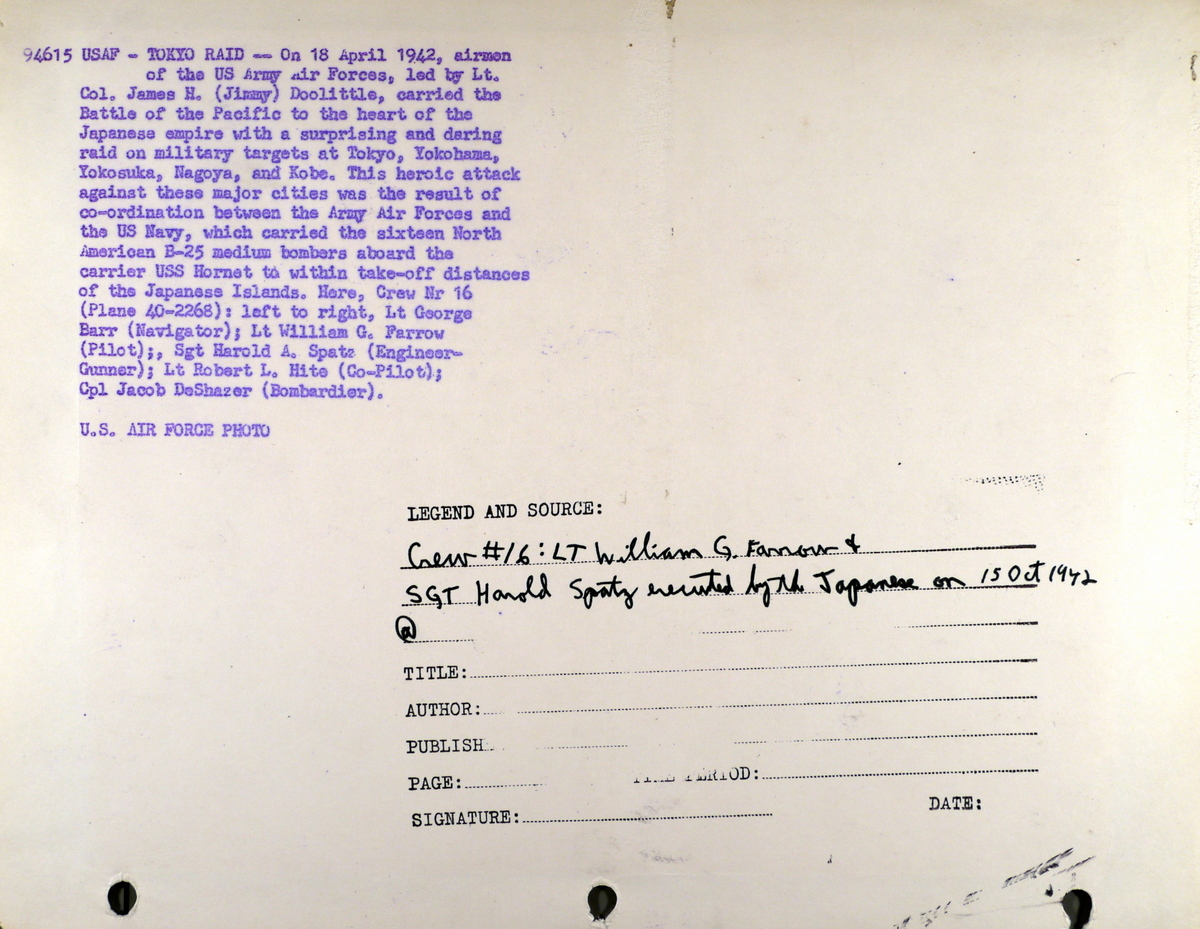 94615 USAF - TOKYO RAID -- On 18 April 1942, airmen
of the US Army Air Forces, led by Lt.
Col. James H. (Jimmy) Doolittle, carried the
Battle of the Pacific to the heart of the
Japanese empire with a surprising and daring
raid on military targets at Tokyo, Yokohama,
Yokosuka, Nagoya, and Kobe. This heroic attack
against these major cities was the result of
co-ordination between the Army Air Forces and
the US Navy, which carried the sixteen North
American B-25 medium bombers aboard the
carrier USS Hornet to within take-off distances
of the Japanese Islands. Here, Crew Nr 16
(Plane 40-2268): left to right, Lt George
Barr (Navigator); Lt William G. Farrow
(Pilot);, Sgt Harold A. Spatz (Engineer-
Gunner); Lt Robert L. Hite (Co-Pilot);
Cpl Jacob DeShazer (Bombardier).
U.S. AIR FORCE PHOTO
LEGEND AND SOURCE:
Crew #16: LT William G. Farrow &
SGT Harold Spatz executed by the Japanese on 15 Oct 1942
@
TITLE:
AUTHOR:
PUBLISH
PAGE: TIME PERIOD:
SIGNATURE: DATE: